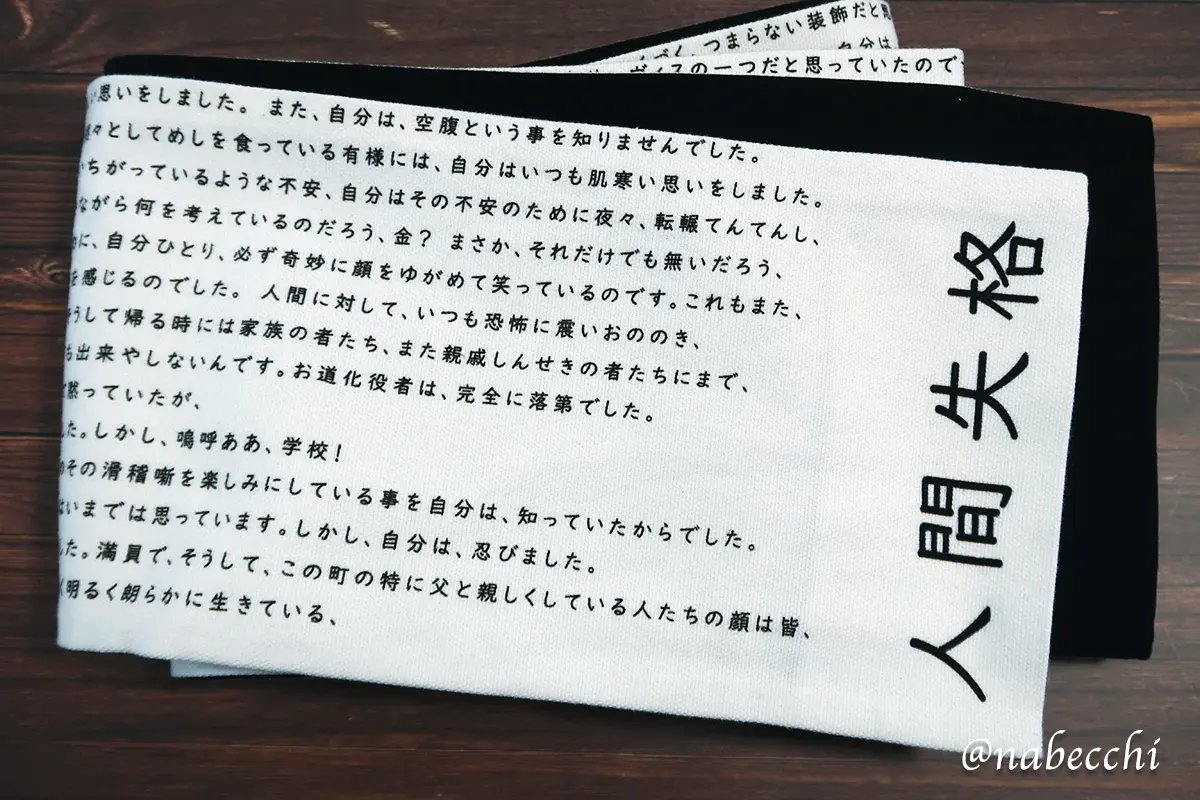 つまらない装飾だと
自分は
の一つだと思っていたので
思いをしました。また、自分は、空腹という事を知りませんでした。
々としてめしを食っている有様には、自分はいつも肌寒い思いをしました。
ちがっているような不安、自分はその不安のために夜々、転輾てんてんし、
ながら何を考えているのだろう、金？ まさか、それだけでも無いだろう、
に、自分ひとり、必ず奇妙に顔をゆがめて笑っているのです。これもまた、
を感じるのでした。 人間に対して、いつも恐怖に震いおののき、
うして帰る時には家族の者たち、また親戚しんせきの者たちにまで、
も出来やしないんです。お道化役者は、完全に落第でした。
て黙っていたが、
した。しかし、嗚呼ああ、学校！
のその滑稽噺を楽しみにしている事を自分は、知っていたからでした。
はいまでは思っています。しかし、自分は、忍びました。
した。満員で、そうして、この町の特に父と親しくしている人たちの顔は皆、
く明るく朗らかに生きている、
人間失格
@nabecchi